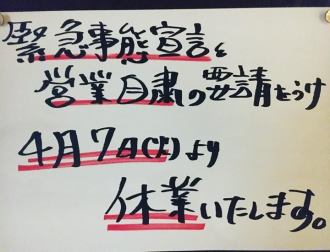 緊急事態宣言と
営業自粛の要請をうけ
4月7日(火)より
休業いたします。